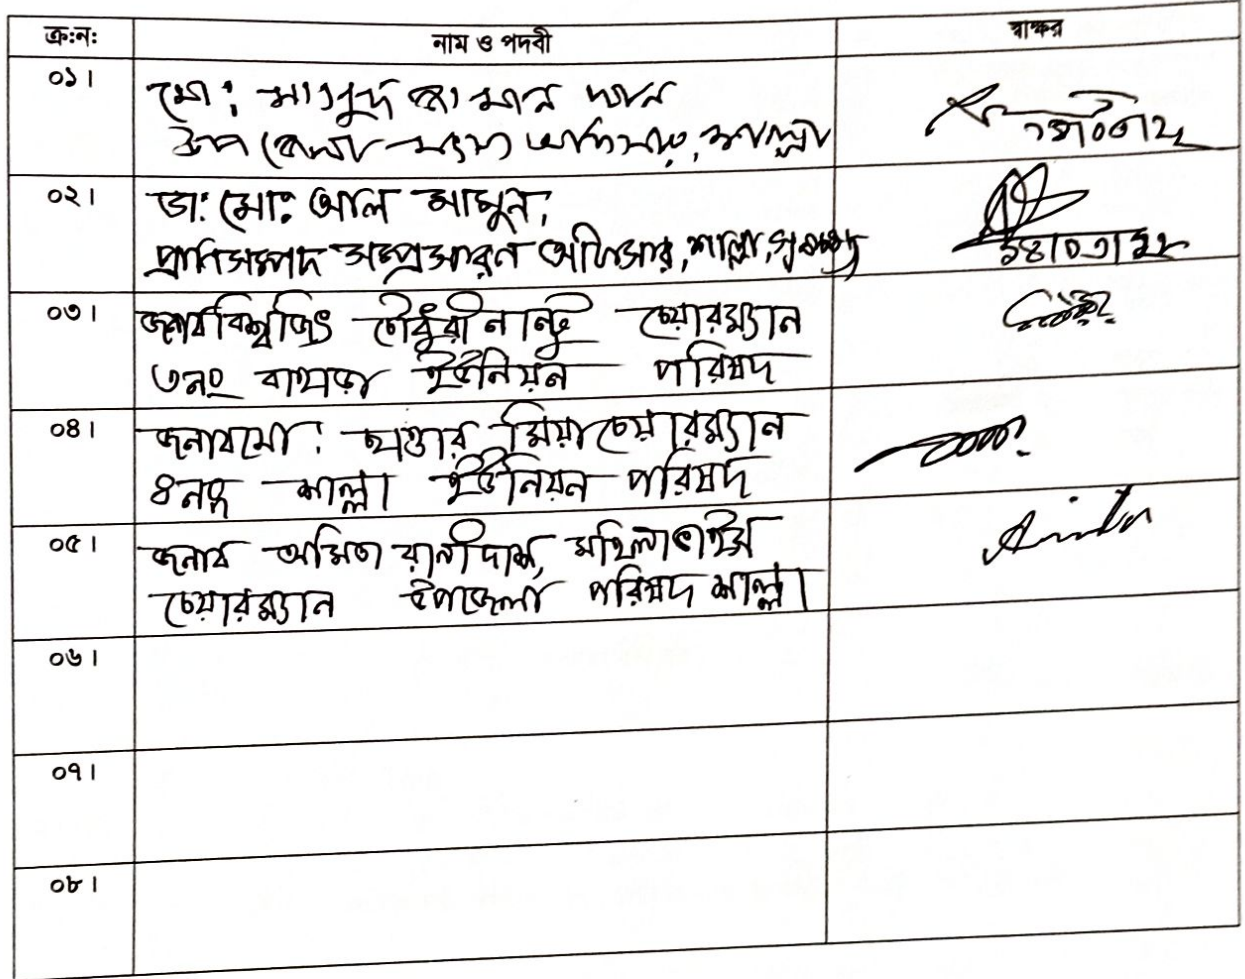 ক্র:ন: নাম ও পদবী স্বাক্ষর
০১। মো: মাসুদ জামান খান
উপজেলা মৎস্য অফিসার, শাল্লা
০২। ডা: মো: আল মামুন,
প্রানিসম্পদ সম্প্রসারন অফিসার, শাল্লা, সুনামগঞ্জ ১৪/০৩/২২
০৩। জনাব বিশ্বজিৎ চৌধুরী নান্টু চেয়ারম্যান
৩নং বাহাড়া ইউনিয়ন পরিষদ
০৪। জনাব মো: ছাত্তার মিয়া চেয়ারম্যান
৪নং শাল্লা ইউনিয়ন পরিষদ
০৫। জনাব অমিতা রানী দাশ, মহিলা ভাইস
চেয়ারম্যান উপজেলা পরিষদ শাল্লা।
০৬।
০৭।
০৮।